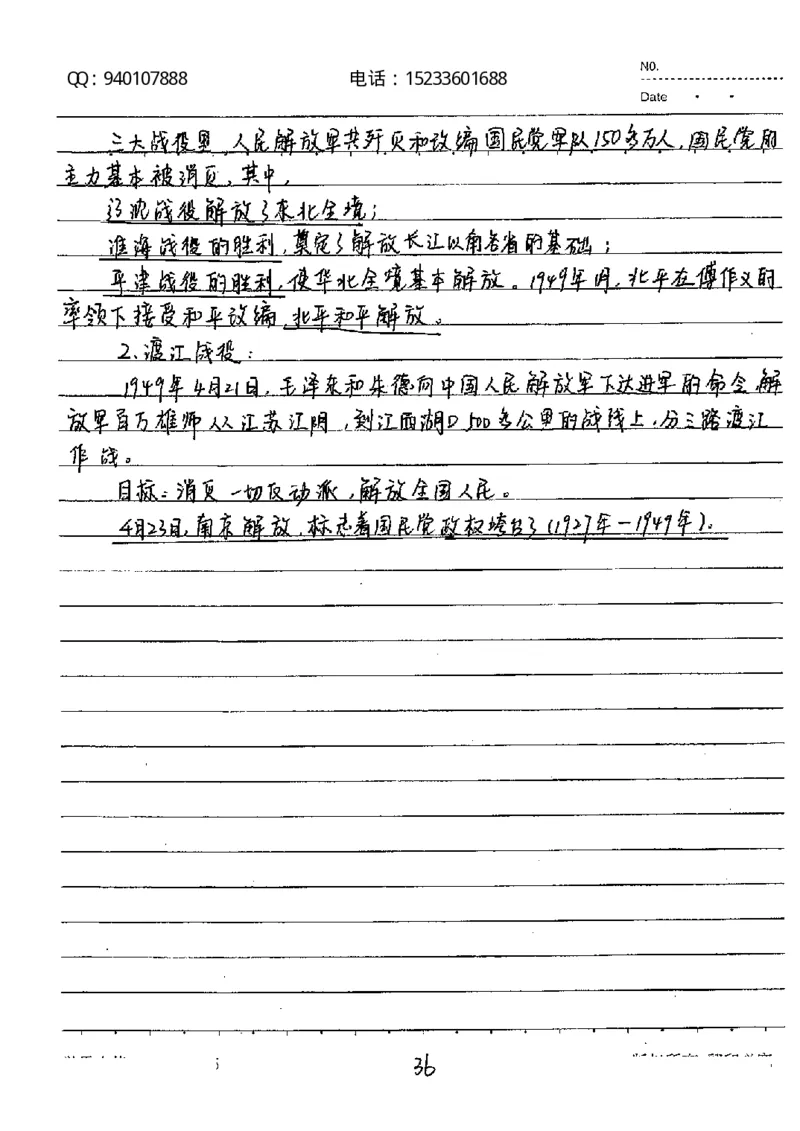 NO.
QQ：940107888 电话：15233601688
Date
三大战役里，人民解放军共歼灭和改编国民党军队150多万人，国民党的
主力基本被消灭，其中，
辽沈战役解放了东北全境；
淮海战役的胜利，奠定了解放长江以南各省的基础；
平津战役的胜利，使华北全境基本解放。1949年1月，北平在傅作义的
率领下接受和平改编，北平和平解放。
2、渡江战役：
1949年4月21日，毛泽东和朱德向中国人民解放军下达进军的命令，解
放军百万雄师从江苏江阴，到江西湖口500多公里的战线上，分三路渡江
作战。
目标：消灭一切反动派，解放全国人民。
4月23日，南京解放，标志着国民党政权垮台了（1927年－1949年）。
36